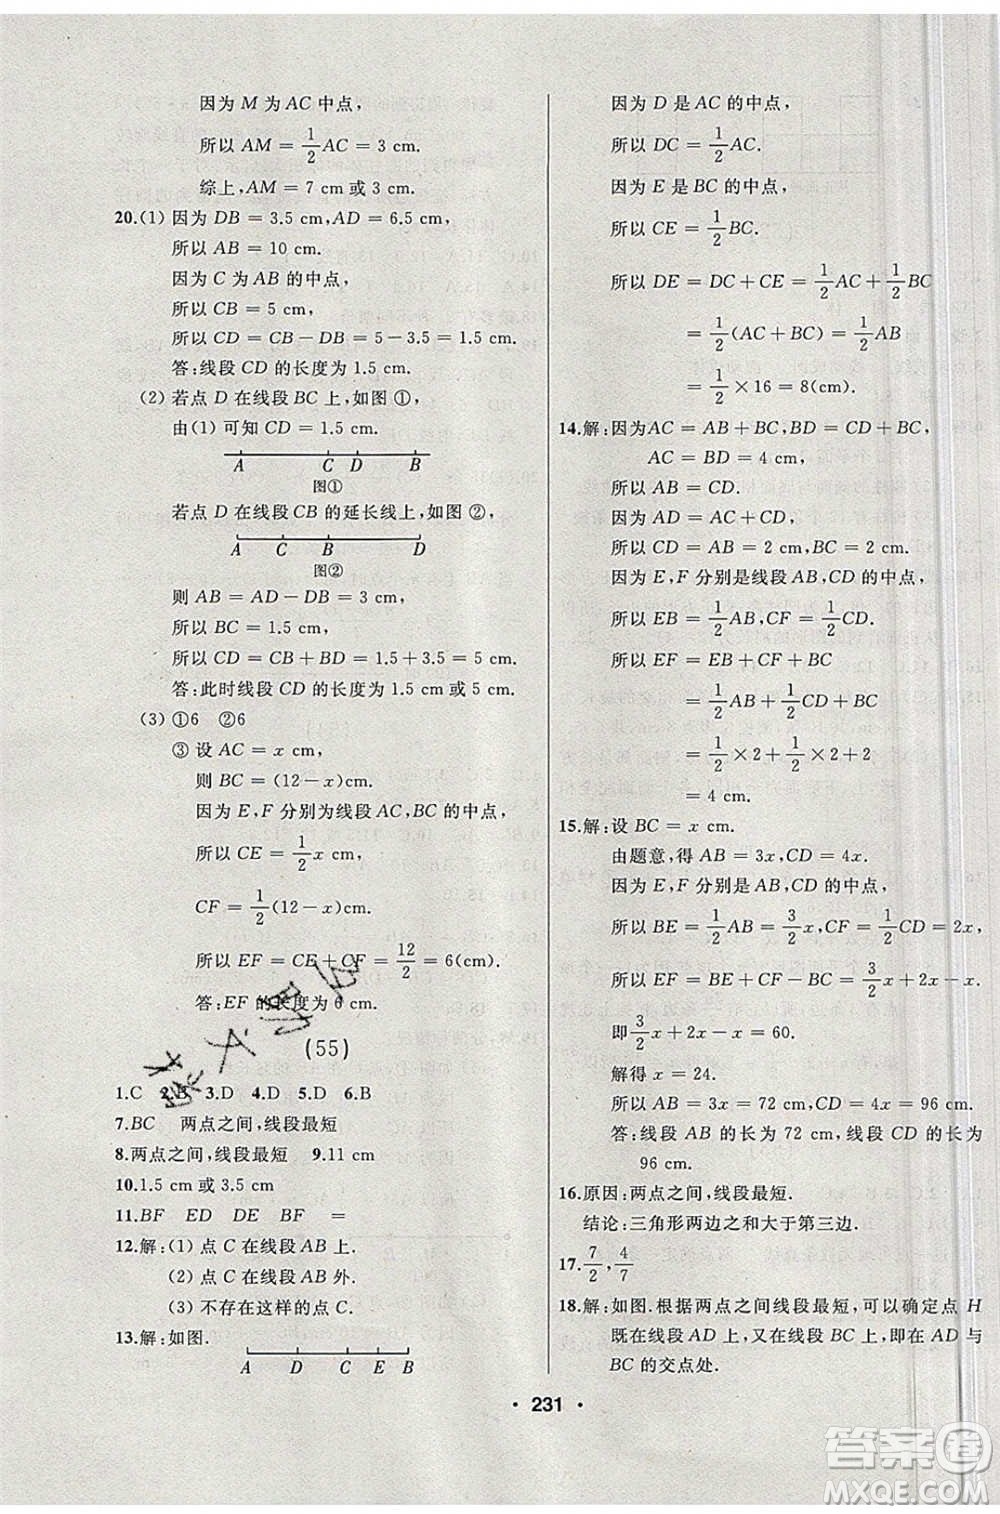 因为 M 为 AC 中点,
所以 AM = 1/2 AC = 3 cm.
综上, AM = 7 cm 或 3 cm.
20.(1) 因为 DB = 3.5 cm, AD = 6.5 cm,
所以 AB = 10 cm.
因为 C 为 AB 的中点,
所以 CB = 5 cm,
所以 CD = CB − DB = 5 − 3.5 = 1.5 cm.
答:线段 CD 的长度为 1.5 cm.
(2) 若点 D 在线段 BC 上,如图 ①,
由(1) 可知 CD = 1.5 cm.
A C D B
图①
若点 D 在线段 CB 的延长线上,如图 ②,
A C B D
图②
则 AB = AD − DB = 3 cm,
所以 BC = 1.5 cm,
所以 CD = CB + BD = 1.5 + 3.5 = 5 cm.
答:此时线段 CD 的长度为 1.5 cm 或 5 cm.
(3) ①6 ②6
③ 设 AC = x cm,
则 BC = (12 − x) cm.
因为 E, F 分别为线段 AC, BC 的中点,
所以 CE = 1/2 x cm,
CF = 1/2 (12 − x)cm.
所以 EF = CE + CF = 12/2 = 6(cm).
答: EF 的长度为 6 cm.
(55)
1.C 2.B 3.D 4.D 5.D 6.B
7.BC 两点之间,线段最短
8.两点之间,线段最短 9.11 cm
10.1.5 cm 或 3.5 cm
11.BF ED DE BF =
12.解:(1) 点 C 在线段 AB 上.
(2) 点 C 在线段 AB 外.
(3) 不存在这样的点 C.
13.解:如图.
A D C E B
因为 D 是 AC 的中点,
所以 DC = 1/2 AC.
因为 E 是 BC 的中点,
所以 CE = 1/2 BC.
所以 DE = DC + CE = 1/2 AC + 1/2 BC
= 1/2 (AC + BC) = 1/2 AB
= 1/2 × 16 = 8(cm).
14.解:因为AC = AB + BC, BD = CD + BC,
AC = BD = 4 cm,
所以 AB = CD.
因为 AD = AC + CD,
所以 CD = AB = 2 cm, BC = 2 cm.
因为 E, F 分别是线段 AB, CD 的中点,
所以 EB = 1/2 AB, CF = 1/2 CD.
所以 EF = EB + CF + BC
= 1/2 AB + 1/2 CD + BC
= 1/2 × 2 + 1/2 × 2 + 2
= 4 cm.
15.解:设 BC = x cm.
由题意,得 AB = 3x, CD = 4x.
因为 E, F 分别是 AB, CD 的中点,
所以 BE = 1/2 AB = 3/2 x, CF = 1/2 CD = 2x,
所以 EF = BE + CF − BC = 3/2 x + 2x − x,
即 3/2 x + 2x − x = 60.
解得 x = 24.
所以 AB = 3x = 72 cm, CD = 4x = 96 cm.
答:线段 AB 的长为 72 cm,线段 CD 的长为
96 cm.
16.原因:两点之间,线段最短.
结论:三角形两边之和大于第三边.
17. 7/2, 4/7
18.解:如图.根据两点之间线段最短,可以确定点 H
既在线段 AD 上,又在线段 BC 上,即在 AD 与
BC 的交点处.
• 231 •
答案卷
MXQE.COM